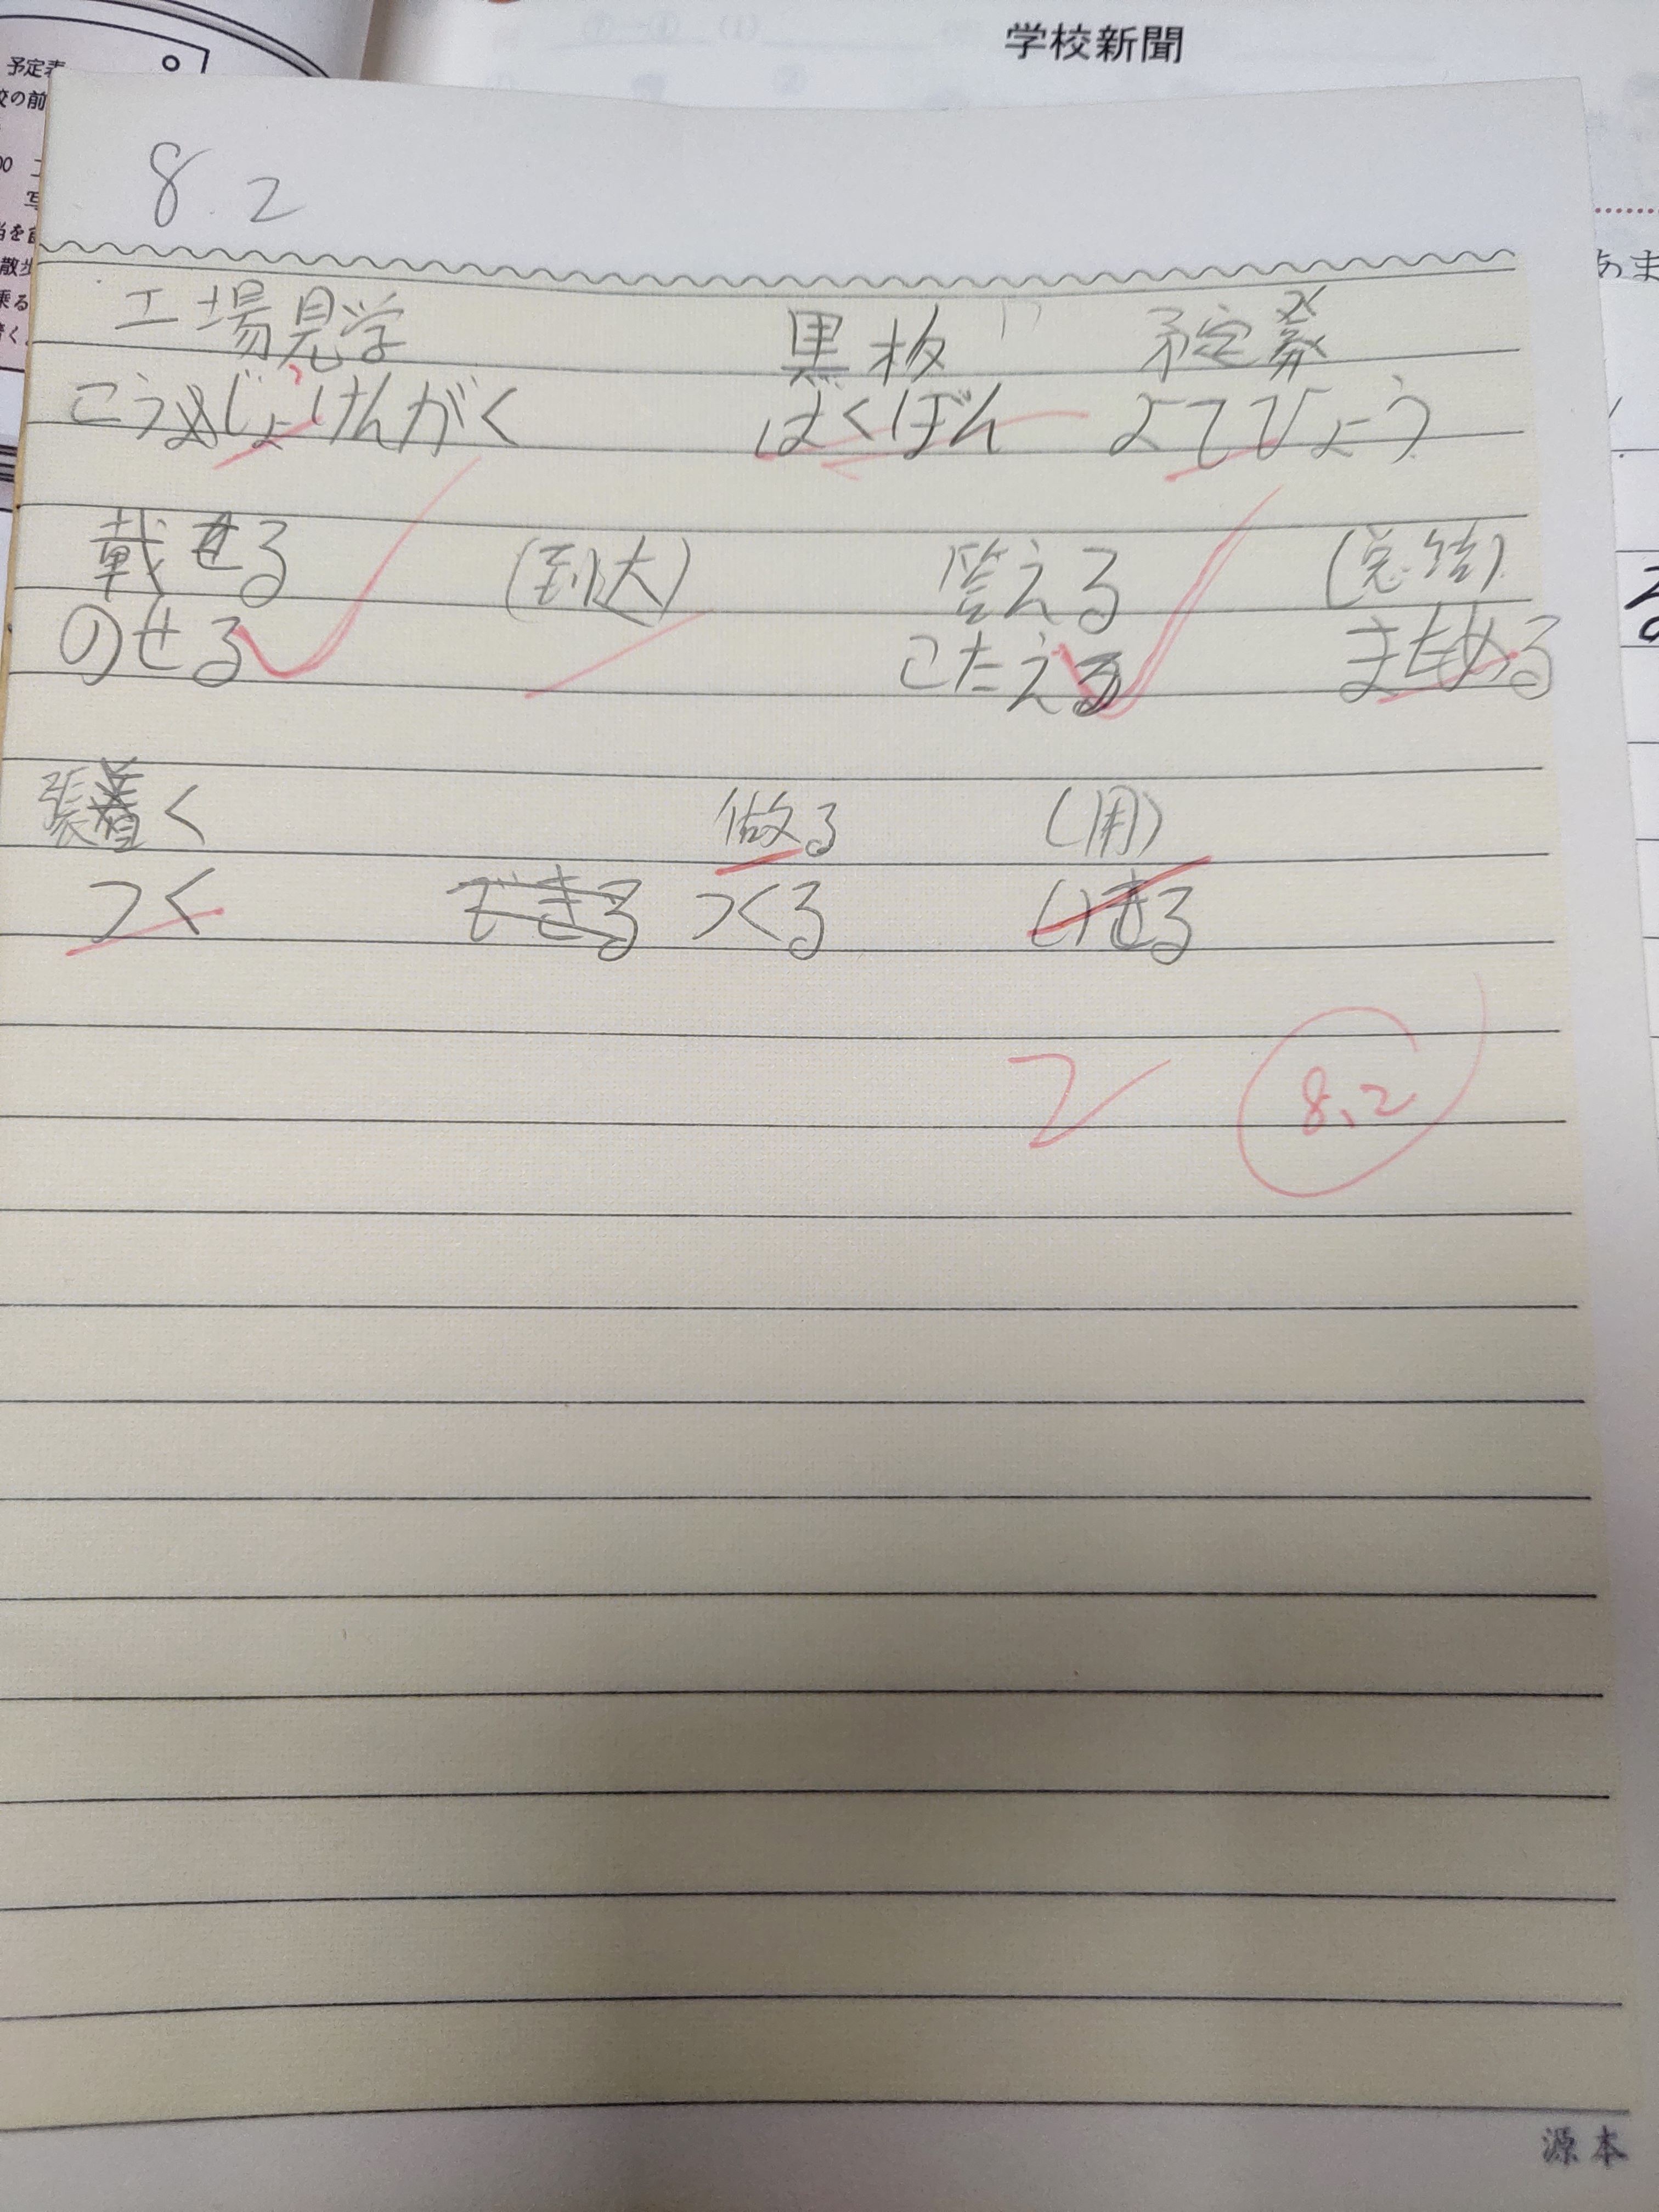 学校新聞
予定表
校の前
散歩
乗る
8.2
工場見学 黒板 予定
こうじょけんがく はくばん よてひょう
載せる (到达) 答える (总结)
のせる こたえる まとめる
張着く 做る (用)
つく できる つくる
2 8.2
あま
源本